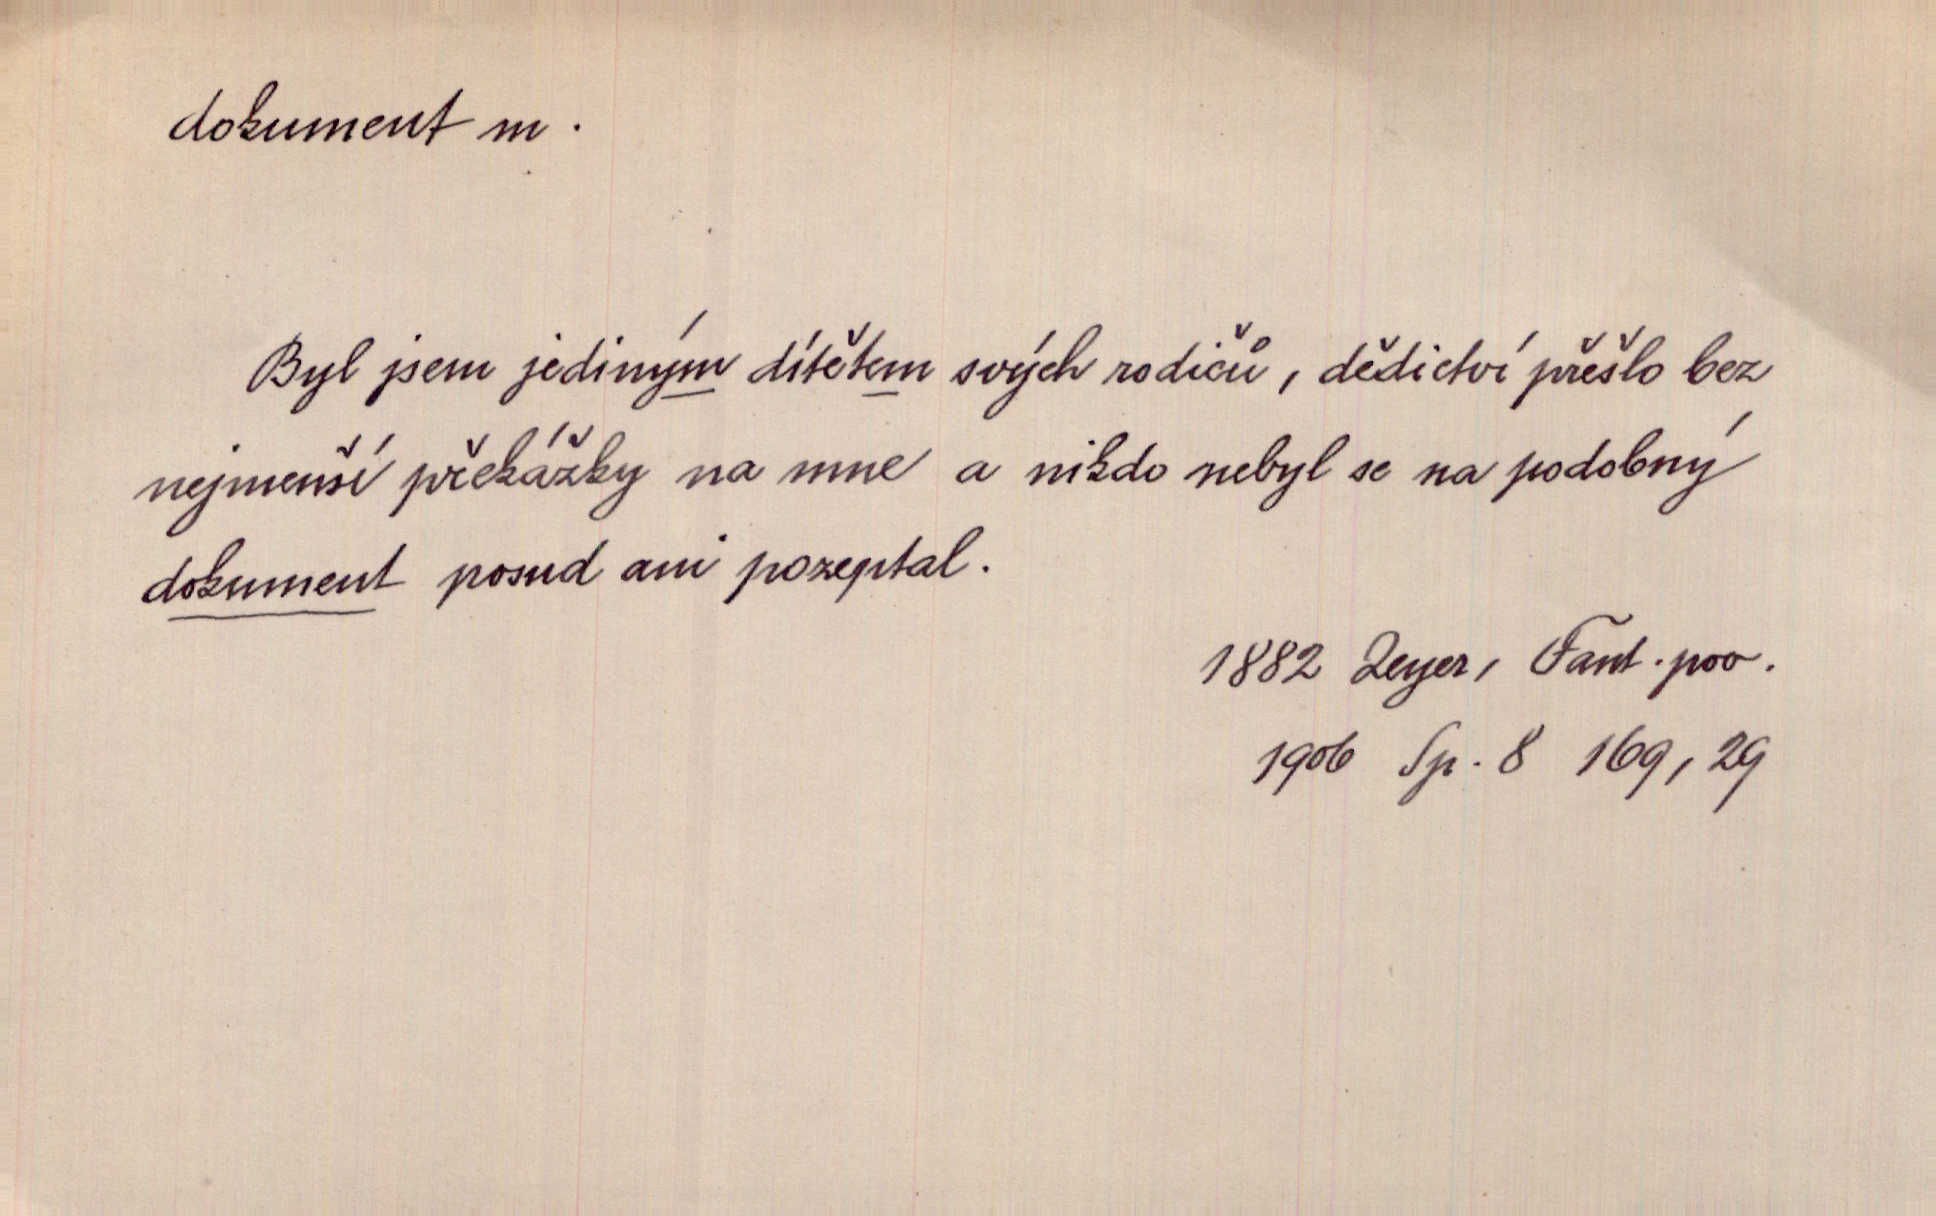 dokument m.
Byl jsem jediným dítětem svých rodičů, dědictví přešlo bez
nejmenší překážky na mne a nikdo nebyl se na podobný
dokument posud ani pozeptal.
1882 Zeyer, Fant. pov.
1906 Sp. 8 169, 29